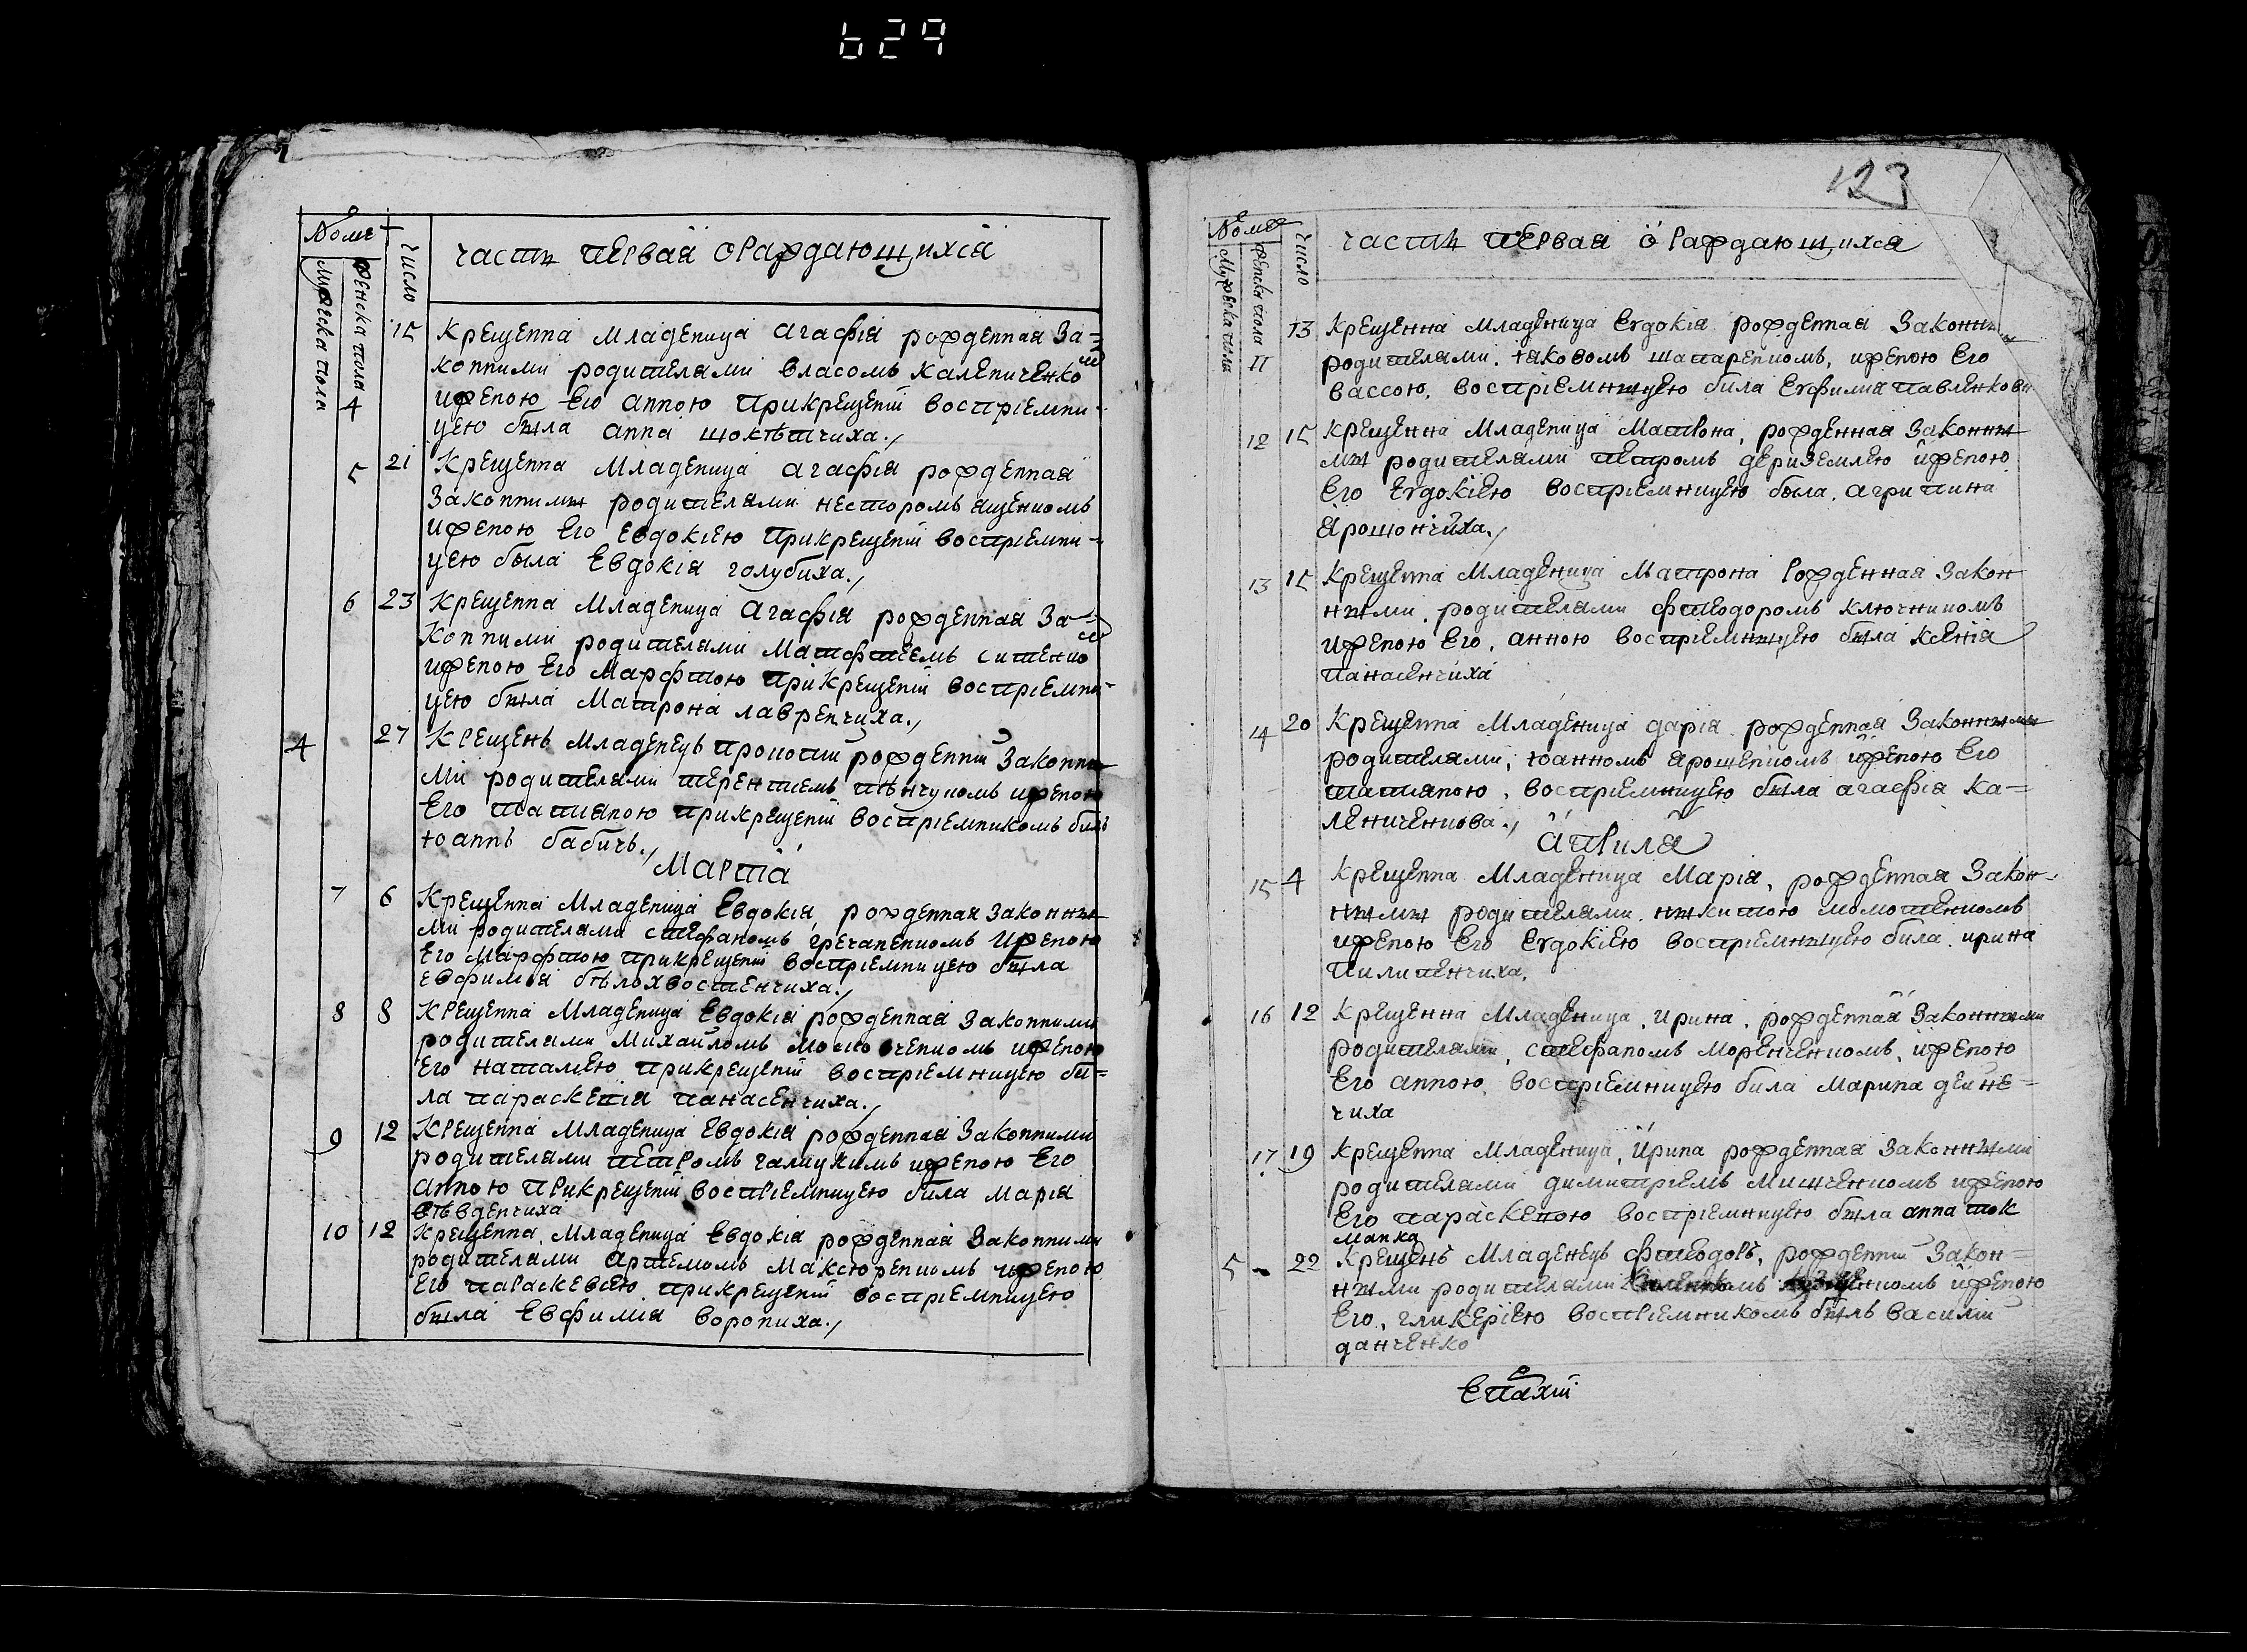 629
Номе
мужеска пола
женска пола
число
часть первая ораждающихся
15 Крещенна младеница агафія рожденная За=
4 конними родителями власомъ каленичѣнкомъ
иженою его анною прикрещеніи воспріемни-
цею была анна шокѣтчиха.,
5 21 Крещенна младеница агафія рожденная
Законними родителями несторомъ ященкомъ
иженою его евдокіею прикрещеніи воспріемни-
цею была евдокія голубиха.,
6 23 Крещенна младеница агафія рожденная За=
конними родителями матфтеемъ
иженою его марфтою прикрещеніи воспріемни-
цею была матрона лавренчиха.,
4 27 Крещенъ младенецъ рожденній законны
ми родителями терентіемъ иженою
его татіаною прикрещеніи воспріемникомъ билъ
іоаннъ бабичъ.,
Марта
7 6 Крещенна младеница евдокія рожденная законны
ми родителями стефаномъ гречаненкомъ иженою
его марфтою прикрещеніи воспріемницею была
евфимія бѣлохвостенчиха.,
8 8 Крещенна младеница евдокія рожденная законними
родителями михайломъ иженою
его наталіею прикрещеніи воспріемницею би=
ла параскевія панасенчиха.,
9 12 Крещенна младеница евдокія рожденная законними
родителями петромъ галицкимъ иженою его
анною прикрещеніи воспріемницею била марія
10 12 Крещенна младеница евдокія рожденная законними
родителями артемомъ иженою
его параскевіею прикрещеніи воспріемницею
была евфиміяворониха.,
123
Номе
мужеска пола
женска пола
число
часть первая ораждающихся
13 Крещенна младеница евдокія рожденная законни
11 родителями іаковомъ шапаренкомъ, иженою его
вассою, воспріемницею била евфимія павленкова
12 15 Крещенна младеница матрона, рожденная законны
мы родителями петромъ дериземлею иженою
его евдокіею воспріемницею была агрипина
ярошончиха.,
13 15 Крещенна младеница матрона рожденная закон
ными родителями фтеодоромъ ключникомъ
иженою его, анною воспріемницею была ксенія
панасенчиха
14 20 Крещенна младеница дарія рожденная законными
родителями, іоанномъ ярошенкомъ иженою его
татіаною, воспріемницею была агафія ка=
лениченкова.,
априля
15 4 Крещенна младеница марія, рожденная закон-
нымы родителями никитою момотенкомъ
иженою его евдокіею воспріемницею била ирина
пилипенчиха,
16 12 Крещенна младеница, ирина, рожденная законными
родителями, стефаномъ моренченкомъ, иженою
его анною воспріемницею била марина дейне=
чиха
17 19 Крещенна младеница, ирина рожденная законными
родителями димитріемъ мищенкомъ иженою
его параскевою воспріемницею была анна ток
манка
5 22 Крещенъ младенецъ фтеодоръ, рожденній закон=
ными родителями иженою
его, гликеріею воспріемникомъ былъ василій
данченко